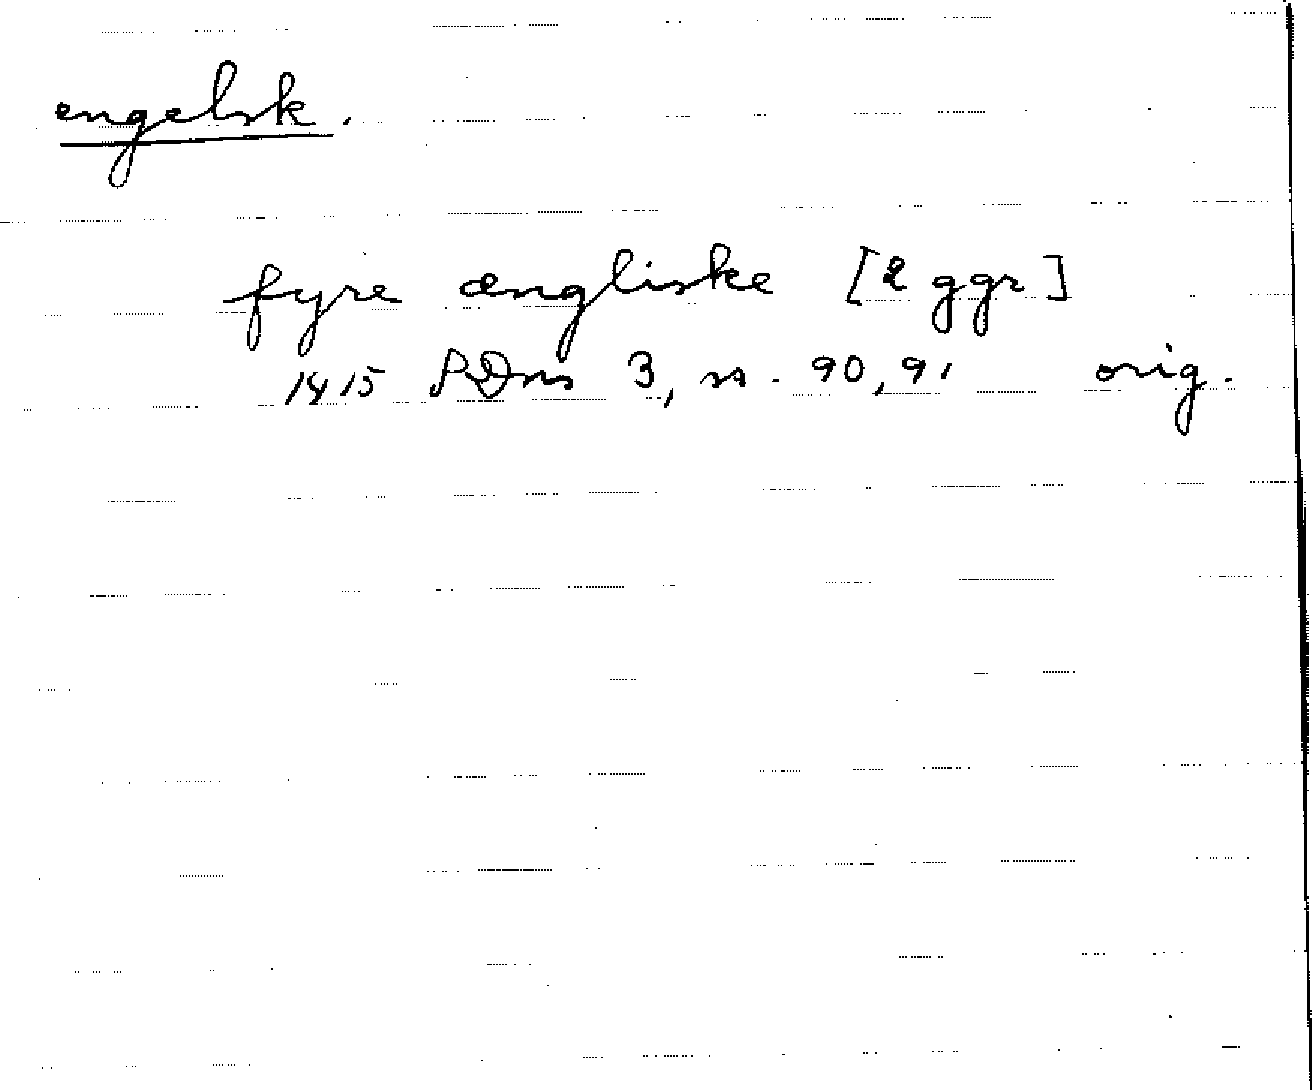 engelsk.
fyre ængliske [2 ggr]
1415 SDns 3, ss. 90, 91 orig.